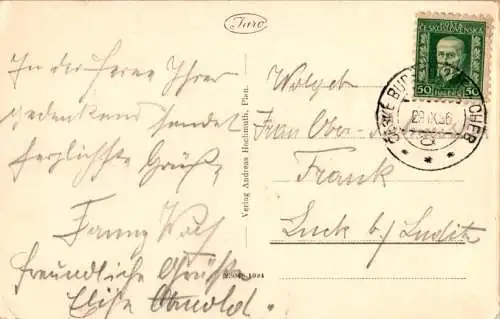 Juro
In der Ferne Ihrer
gedenkend sendet
herzlichste Grüße
Fanny
freundliche Grüße
Elise
Verlag Andreas Hochmuth, Plan.
ČESKOSLOVENSKÁ
50 50
ČESKÉ BUD CHEB
29 IX 36
Wolgeb.
Frau Ober-
Frank
Luck b/ Luditz